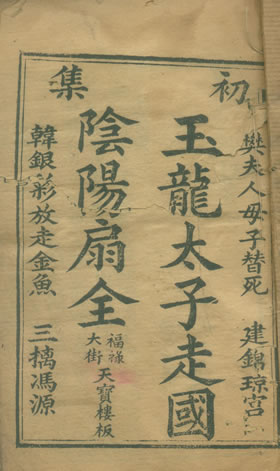 初集
樊夫人毋子替死 建錦琼宮
玉龍太子走國
陰陽扇全
福祿
大街
天寶樓板
韓銀彩放走金魚 三擒馮源